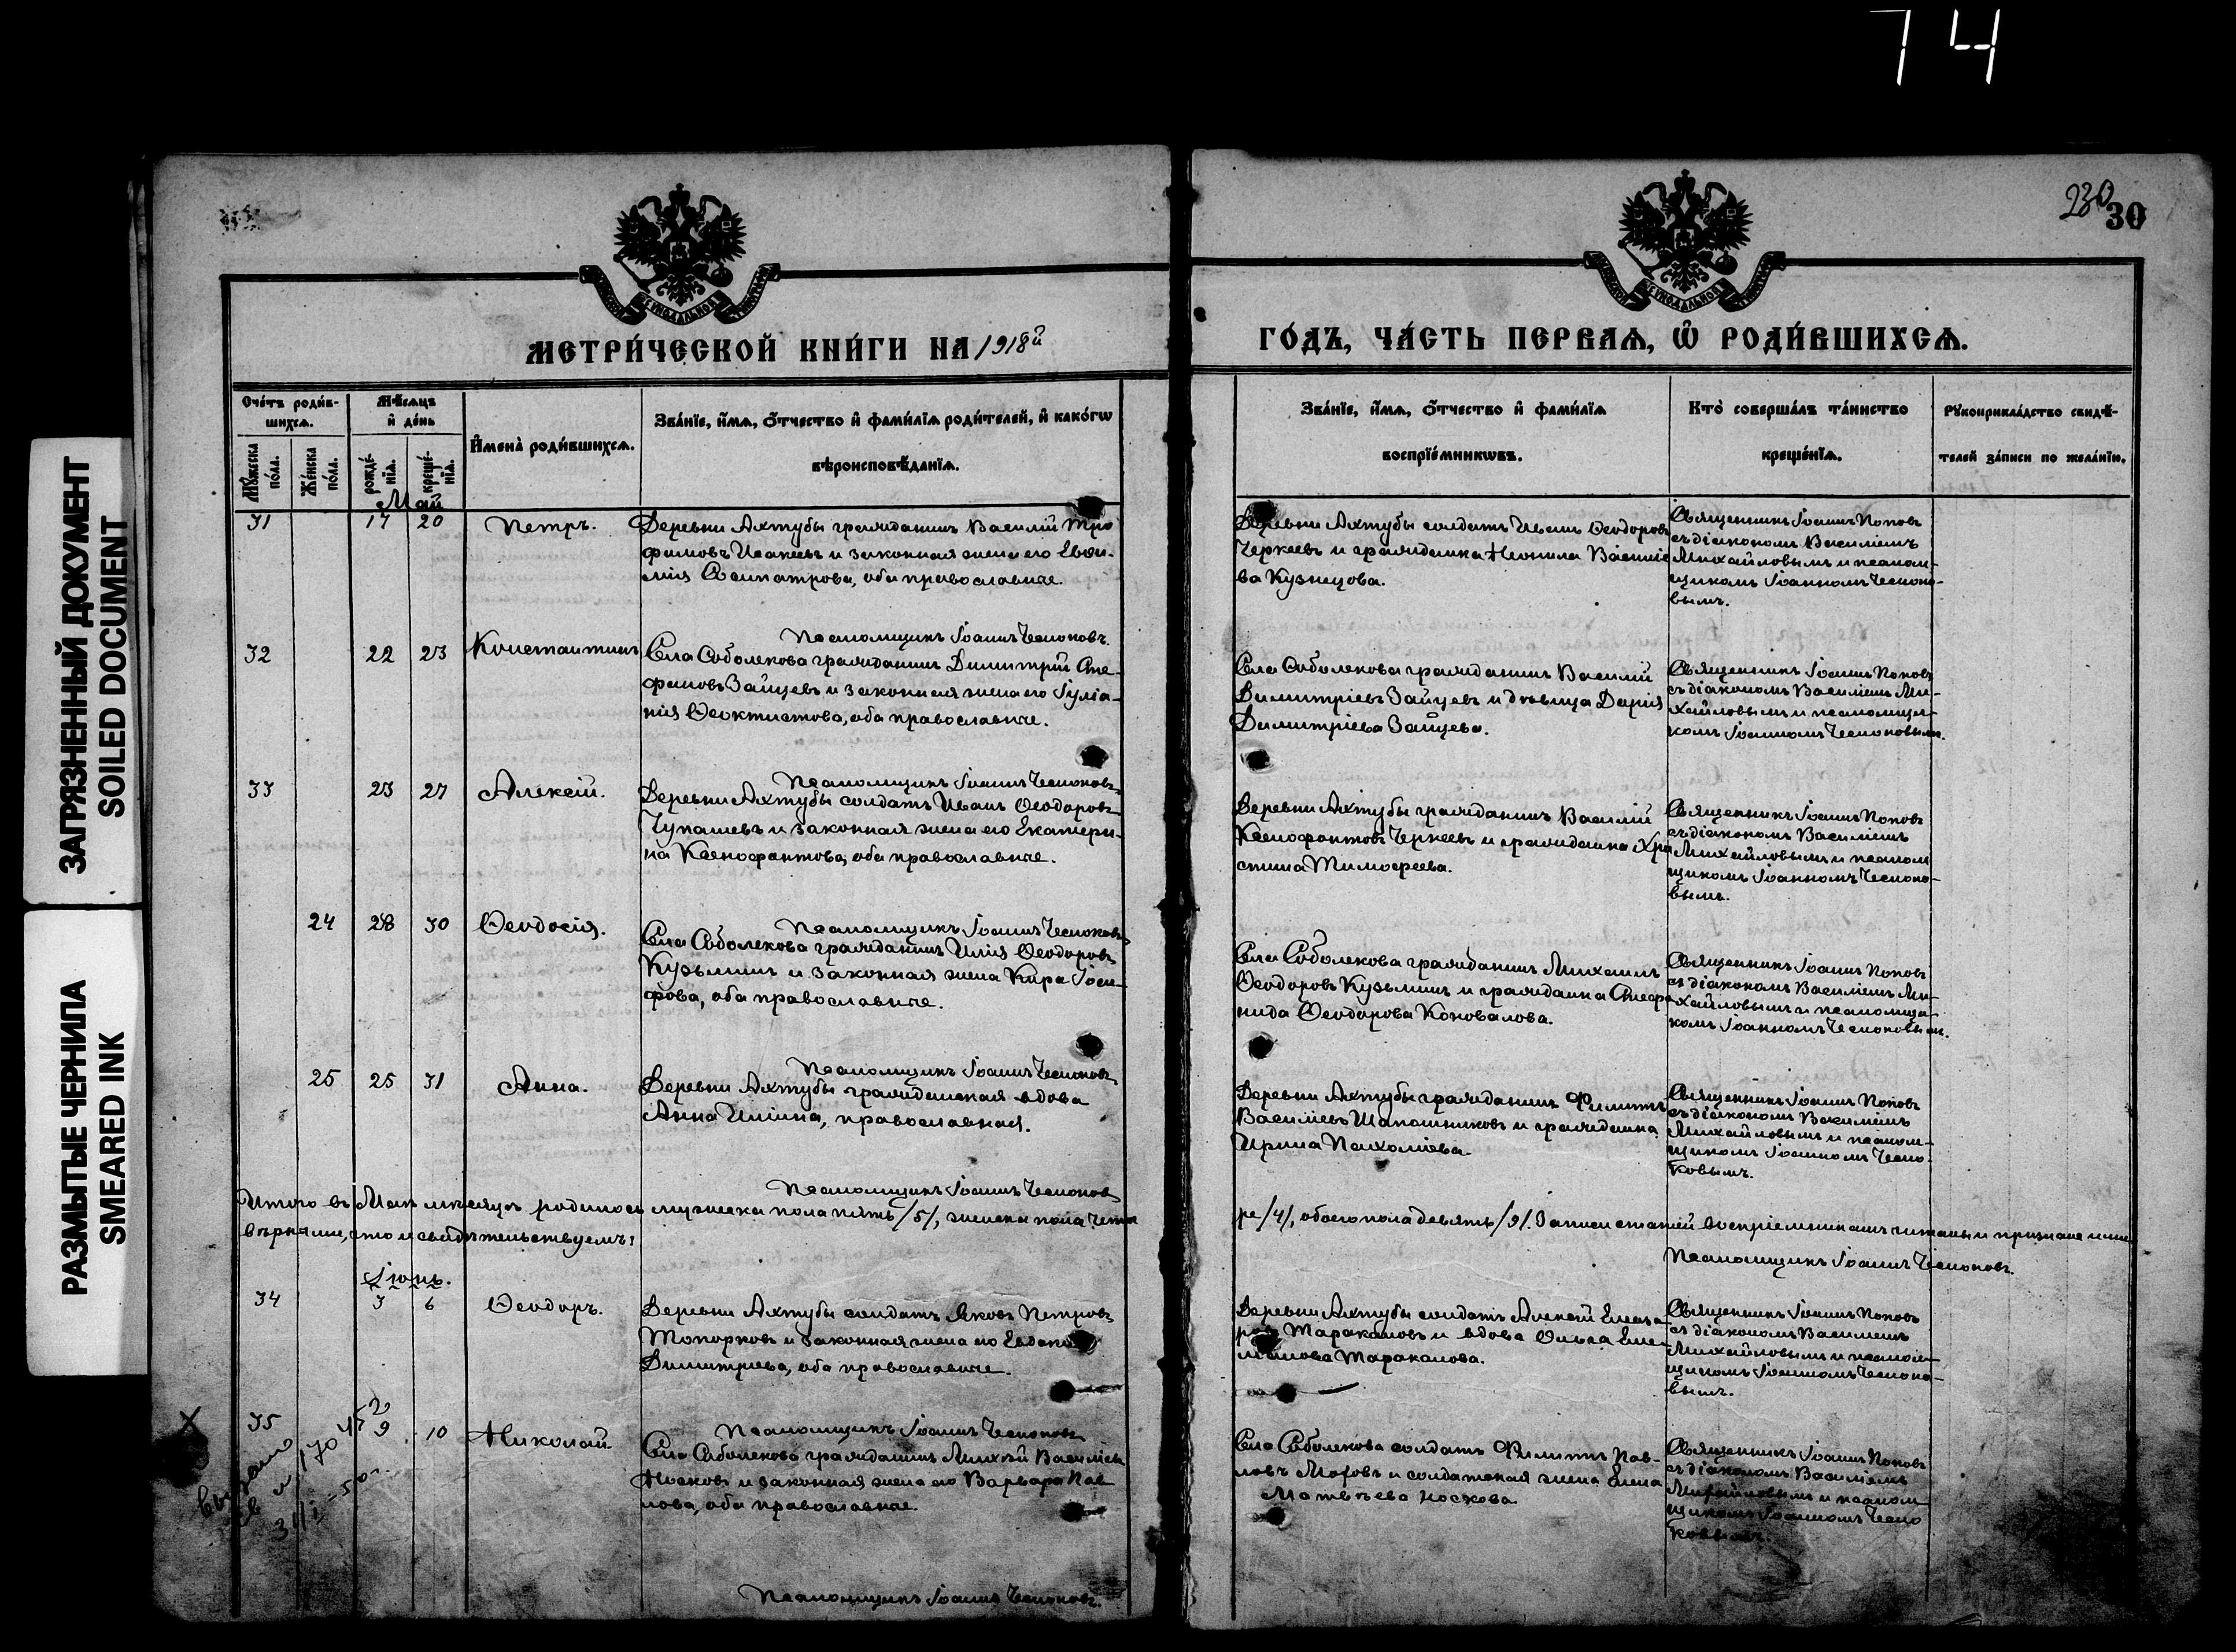 74
ЗАГРЯЗНЕННЫЙ ДОКУМЕНТ
SOILED DOCUMENT
РАЗМЫТЫЕ ЧЕРНИЛА
SMEARED INK
230 30
МЕТРИ́ЧЕСКОЙ КНИ́ГИ НА 1918й
ГО́ДЪ, ЧА́СТЬ ПЕРВАѦ, Ѽ РОДИ́ВШИХСѦ.
Сче́тъ роди́в-
шихсѧ.
Мꙋ́жеска по́ла.
Же́нска по́ла.
Мѣ́сѧцъ
и҆ де́нь
рожде́-
нїѧ.
креще́-
нїѧ.
И҆мена̀ роди́вшихсѧ.
Зва́нїе, и҆́мѧ, ѻ҆́тчество и҆ фами́лїѧ роди́телей, и҆ како́гѡ
вѣроисповѣ́данїѧ.
Зва́нїе, и҆́мѧ, ѻ҆́тчество и҆ фами́лїѧ
воспрїе́мникѡвъ.
Кто̀ соверша́лъ та́инство
креще́нїѧ.
Рꙋкоприкла́дство свидѣ́-
телей за́писи по жела́нїю.
Май
31 17 20 Петръ.
Деревни Ахтубы гражданинъ Василій Тро
фимовъ Исакеевъ и законная жена его Евфи-
мія Сосипатрова, оба православные.
Деревни Ахтубы солдатъ Иванъ Ѳеодоровъ
Черкеевъ и гражданка Неонила Василіе
ва Кузнецова.
Священникъ Іоаннъ Поповъ
съ діакономъ Василіемъ
Михайловымъ и псалом-
щикомъ Іоанномъ Чесноко-
вымъ.
Псаломщикъ Іоаннъ Чесноковъ.
32 22 23 Константинъ
Села Соболекова гражданинъ Димитрій Сте-
фановъ Зайцевъ и законная жена его Іуліа-
нія Ѳеоктистова, оба православные.
Села Соболекова гражданинъ Василій
Димитріевъ Зайцевъ и дѣвица Дарія
Димитріева Зайцева.
Священникъ Іоаннъ Поповъ
съ діакономъ Василіемъ Ми-
хайловымъ и псаломщи-
комъ Іоанномъ Чесноковымъ.
Псаломщикъ Іоаннъ Чесноковъ.
33 23 27 Алексій.
Деревни Ахтубы солдатъ Иванъ Ѳеодоровъ
Чупашевъ и законная жена его Екатери-
на Ксенофонтова, оба православные.
Деревни Ахтубы гражданинъ Василій
Ксенофонтовъ Черкеевъ и гражданка Хри
стина Тимофеева.
Священникъ Іоаннъ Поповъ
съ діакономъ Василіемъ
Михайловымъ и псалом
щикомъ Іоанномъ Чесноко-
вымъ.
Псаломщикъ Іоаннъ Чесноковъ
24 28 30 Ѳеодосія.
Села Соболекова гражданинъ Илія Ѳеодоровъ
Кузьминъ и законная жена Кира Іоси-
фова, оба православные.
Села Соболекова гражданинъ Михаилъ
Ѳеодоровъ Кузьминъ и гражданка Стефа
нида Ѳеодорова Коновалова.
Священникъ Іоаннъ Поповъ
съ діакономъ Василіемъ Ми-
хайловымъ и псаломщи-
комъ Іоанномъ Чесноковымъ.
Псаломщикъ Іоаннъ Чесноковъ
25 25 31 Анна.
Деревни Ахтубы гражданская вдова
Анна Иліина, православная.
Деревни Ахтубы гражданинъ Филиппъ
Василіевъ Шапошниковъ и гражданка
Ирина Пахоміева.
Священникъ Іоаннъ Поповъ
съ діакономъ Василіемъ
Михайловымъ и псалом-
щикомъ Іоанномъ Чесно-
ковымъ.
Псаломщикъ Іоаннъ Чесноковъ
Итого въ Маѣ мѣсяцѣ родилось мужеска пола пять /5/, женска пола четы
ре /4/, обоего пола девять /9/. Записи статей воспріемникамъ читаны и признаны ими
вѣрными, что и свидѣтельствуемъ:
Псаломщикъ Іоаннъ Чесноковъ.
Іюнь.
34 3 6 Ѳеодоръ.
Деревни Ахтубы солдатъ Яковъ Петровъ
Топорковъ и законная жена его Евдокія
Димитріева, оба православные.
Деревни Ахтубы солдатъ Алексій Елеаза-
ровъ Таракановъ и вдова Ольга
Тараканова.
Священникъ Іоаннъ Поповъ
съ діакономъ Василіемъ
Михайловымъ и псалом-
щикомъ Іоанномъ Чесноко-
вымъ.
Псаломщикъ Іоаннъ Чесноковъ
35 9 10 Николай
Села Соболекова гражданинъ Михѣй Василіевъ
Носковъ и законная жена его Варвара Пав
лова, оба православные.
Села Соболекова солдатъ Филиппъ Пав-
ловъ и солдатская жена Елена
Матвѣева Носкова
Священникъ Іоаннъ Поповъ
съ діакономъ Василіемъ
Михайловымъ и псалом
щикомъ Іоанномъ Чесно
ковымъ.
Псаломщикъ Іоаннъ Чесноковъ.